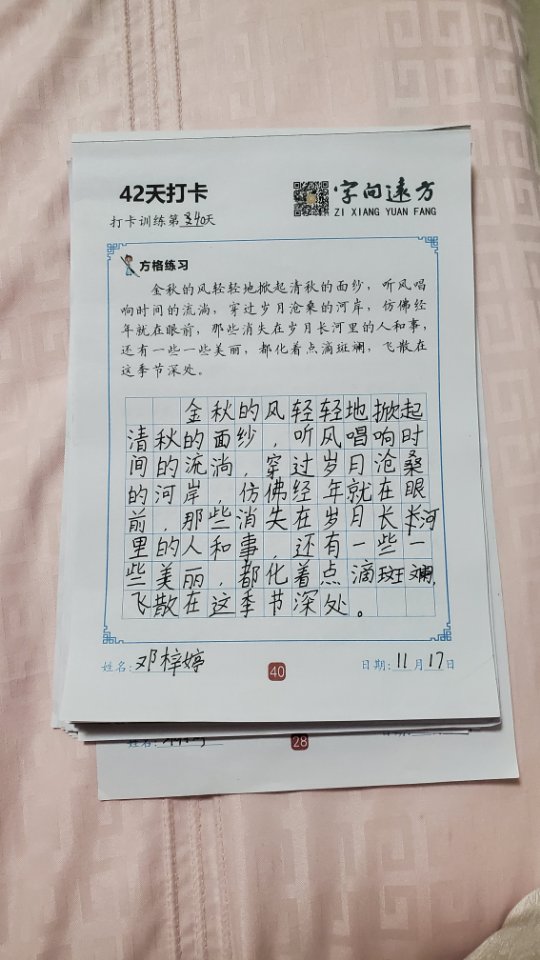 42天打卡
字向远方
ZI XIANG YUAN FANG
打卡训练第40天
方格练习
金秋的风轻轻地掀起清秋的面纱，听风唱
响时间的流淌，穿过岁月沧桑的河岸，仿佛经
年就在眼前，那些消失在岁月长河里的人和事，
还有一些一些美丽，都化着点滴斑斓，飞散在
这季节深处。
金秋的风轻轻地掀起
清秋的面纱，听风唱响时
间的流淌，穿过岁月沧桑
的河岸，仿佛经年就在眼
前，那些消失在岁月长河
里的人和事，还有一些一
些美丽，都化着点滴斑斓，
飞散在这季节深处。
姓名：邓梓婷
40
日期：11月17日
姓名：
28